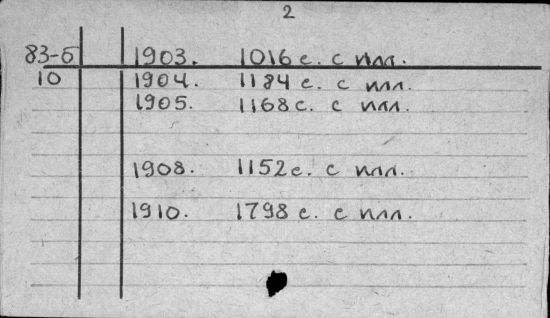 2
83-б 1903. 1016 с. с илл.
10 1904. 1184 с. с илл.
1905. 1168 с. с илл.
1908. 1152 с. с илл.
1910. 1798 с. с илл.